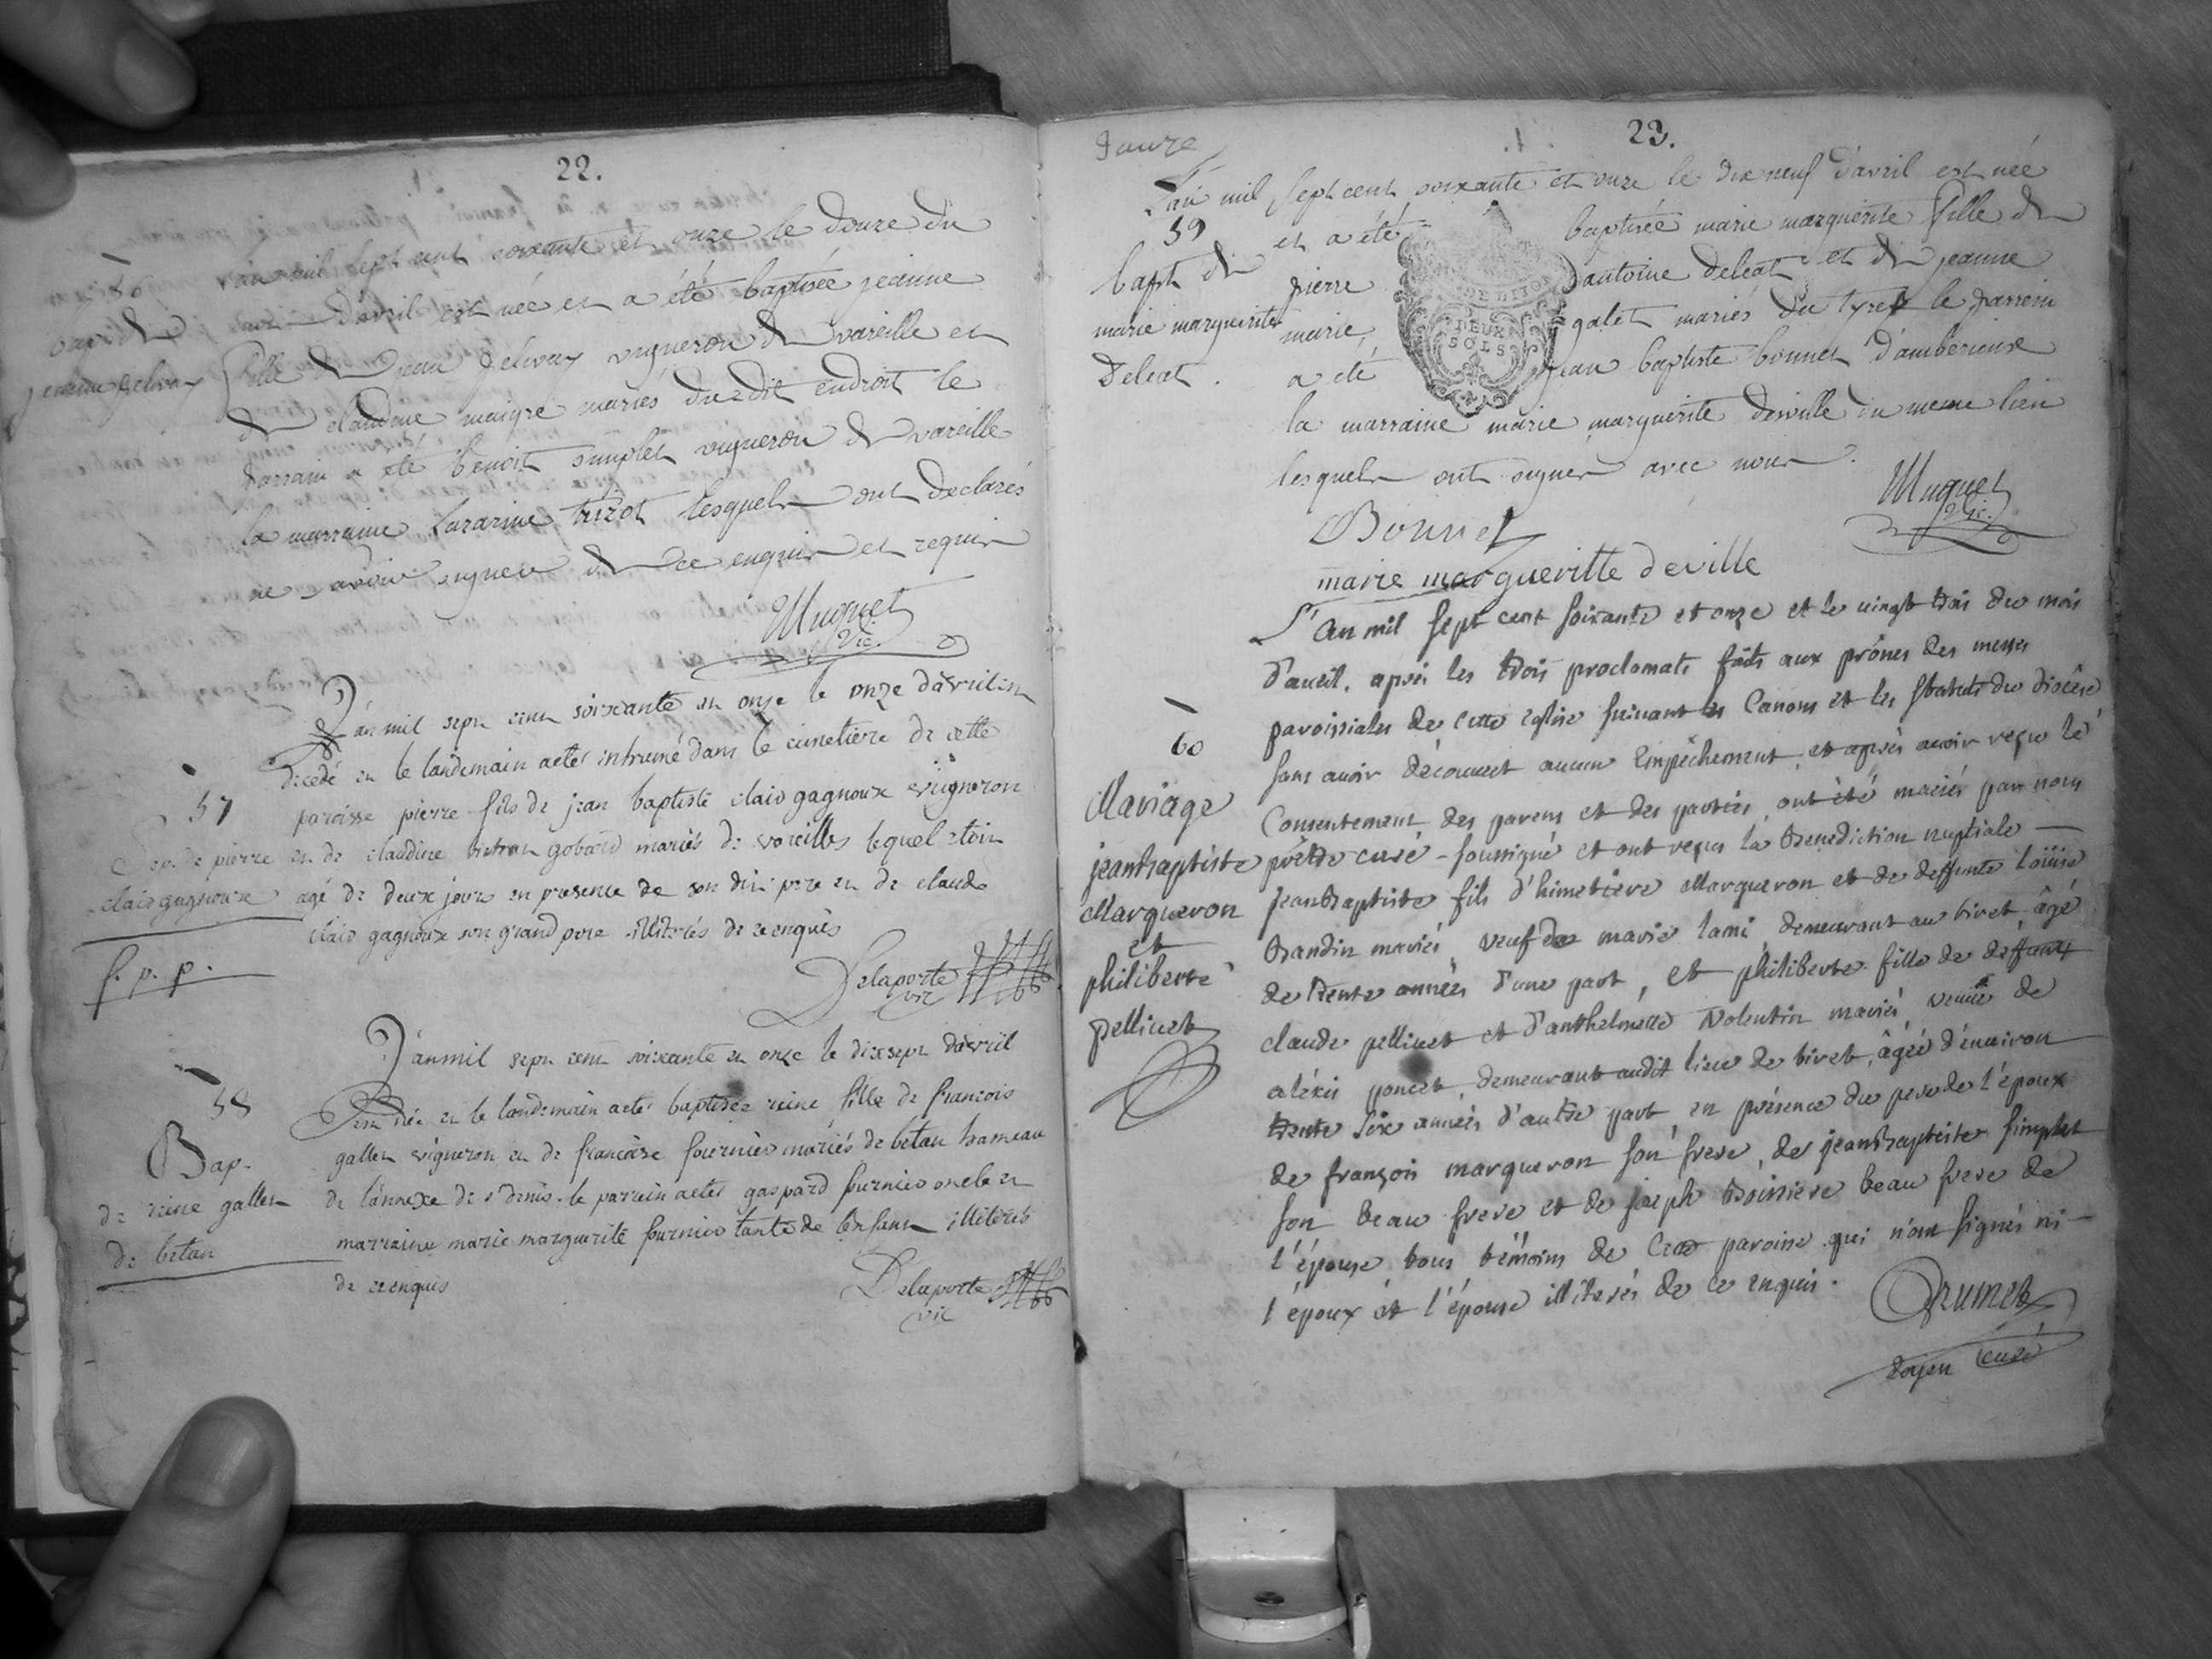 22.
56
bap. de
jeanne gelivay
L'an mil sept cent soixante et onze le douze du
mois d'avril est née et a été baptisée jeanne
fille de jean gelivay vigneron de vareille et
de claudine maigre mariés du dit endroit le
parrain a été benoit simplet vigneron de vareille
la marraine Lazarine trizot lesquels ont declarés
ne savoir signer de ce enquis et requis
Muguet
Vic.
57
Sep. de pierre
clair gagnoux
f. p. p.
L'an mil sept cent soixante et onze le onze d'avril est
décedé et le landemain a eté inhumé dans le cimetiere de cette
paroisse pierre fils de jean baptiste clair gagnoux vigneron
et de claudine gobard mariés de vareilles lequel etoit
agé de deux jours en presence de son dit pere et de claude
clair gagnoux son grand pere illiterés de ce enquis
Delaporte
vic
58
Bap.
de reine gallet
de betan
L'an mil sept cent soixante et onze le dixsept d'avril
est née et le landemain a eté baptisée reine fille de francois
gallet vigneron et de francoise fournier mariés de betan hameau
de l'annexe de st denis. le parrein a eté gaspard furnier oncle et
marraine marie marguerite fournier tante de l'enfant illiterés
de ce enquis
Delaporte
vic
23.
douze
59
bapt. de
marie marguerite
Deleat.
L'an mil sept cent soixante et onze le dix neuf d'avril est née
et a été baptisée marie marguerite fille de
pierre d'antoine deleat et de jeanne
marie, galet mariés du tyret le parrein
a été jean baptiste bonnet d'amberieux
la marraine marie marguerite deville du meme lieu
lesquels ont signer avec nous.
DE DIJON
DEUX
SOLS
Muguet
Vic.
Bonnet
marie margueritte deville
60
Mariage
jeanbaptiste
Marqueron
et
philiberte
pellicet
L'an mil sept cent soixante et onze et le vingt trois du mois
d'avril. après les trois proclamats faits aux prônes des messes
paroissiales de cette eglise suivant les Canons et les statuts du diocèse
sans avoir découvert aucun Empêchement, et après avoir reçu le
Consentement des parens et des parties, ont été mariés par nous
prêtre curé soussigné et ont reçu la Benediction nuptiale
jeanbaptiste fils d'himetiere Marqueron et de deffunte Loüise
Bandin mariés, veuf de marie lami demeurant au tiret âgé
de trente années d'une part, et philiberte fille de deffunts
claude pellicet et d'anthelmette Nolentin mariés, veuve de
aléxis poncet, demeurant audit lieu de tiret, âgée d'environ
trente six années d'autre part, en présence du pere de l'époux
de françois marqueron son frere, de jeanbaptiste simplet
son beau frere et de joseph Boissiere beau frere de
l'épouse tous témoins de Cette paroisse qui n'ont signés ni
l'époux et l'épouse illiterés de ce enquis.
Brumet
doyen curé